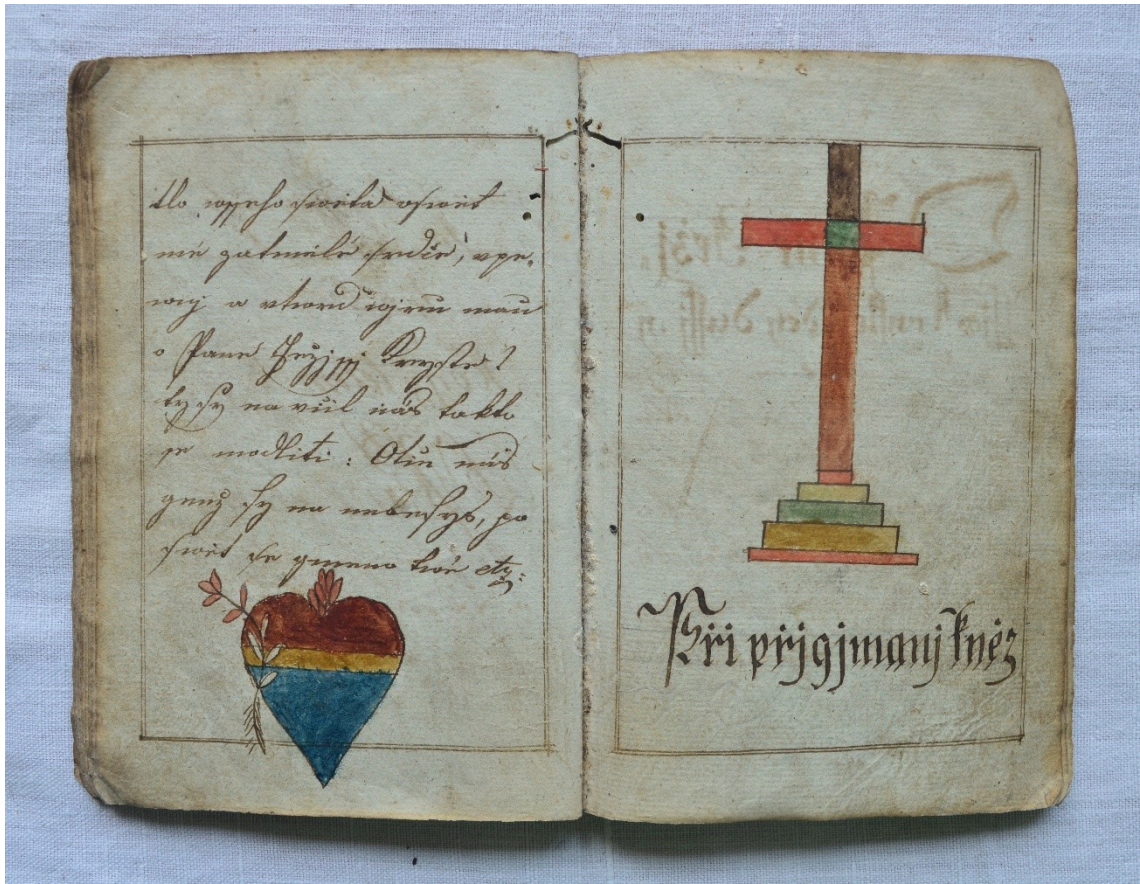 tlo wsseho swěta oswět
mé zatmělé srdce, vpe,
wnj a vtwrd wjru mau
o Pane Gežjssj Kryste!
ty sy navčil nás takto
se modliti: Otče náš
genž sy na nebesych, po
swět se gmeno twé etz:
Při přigjmanj kněz